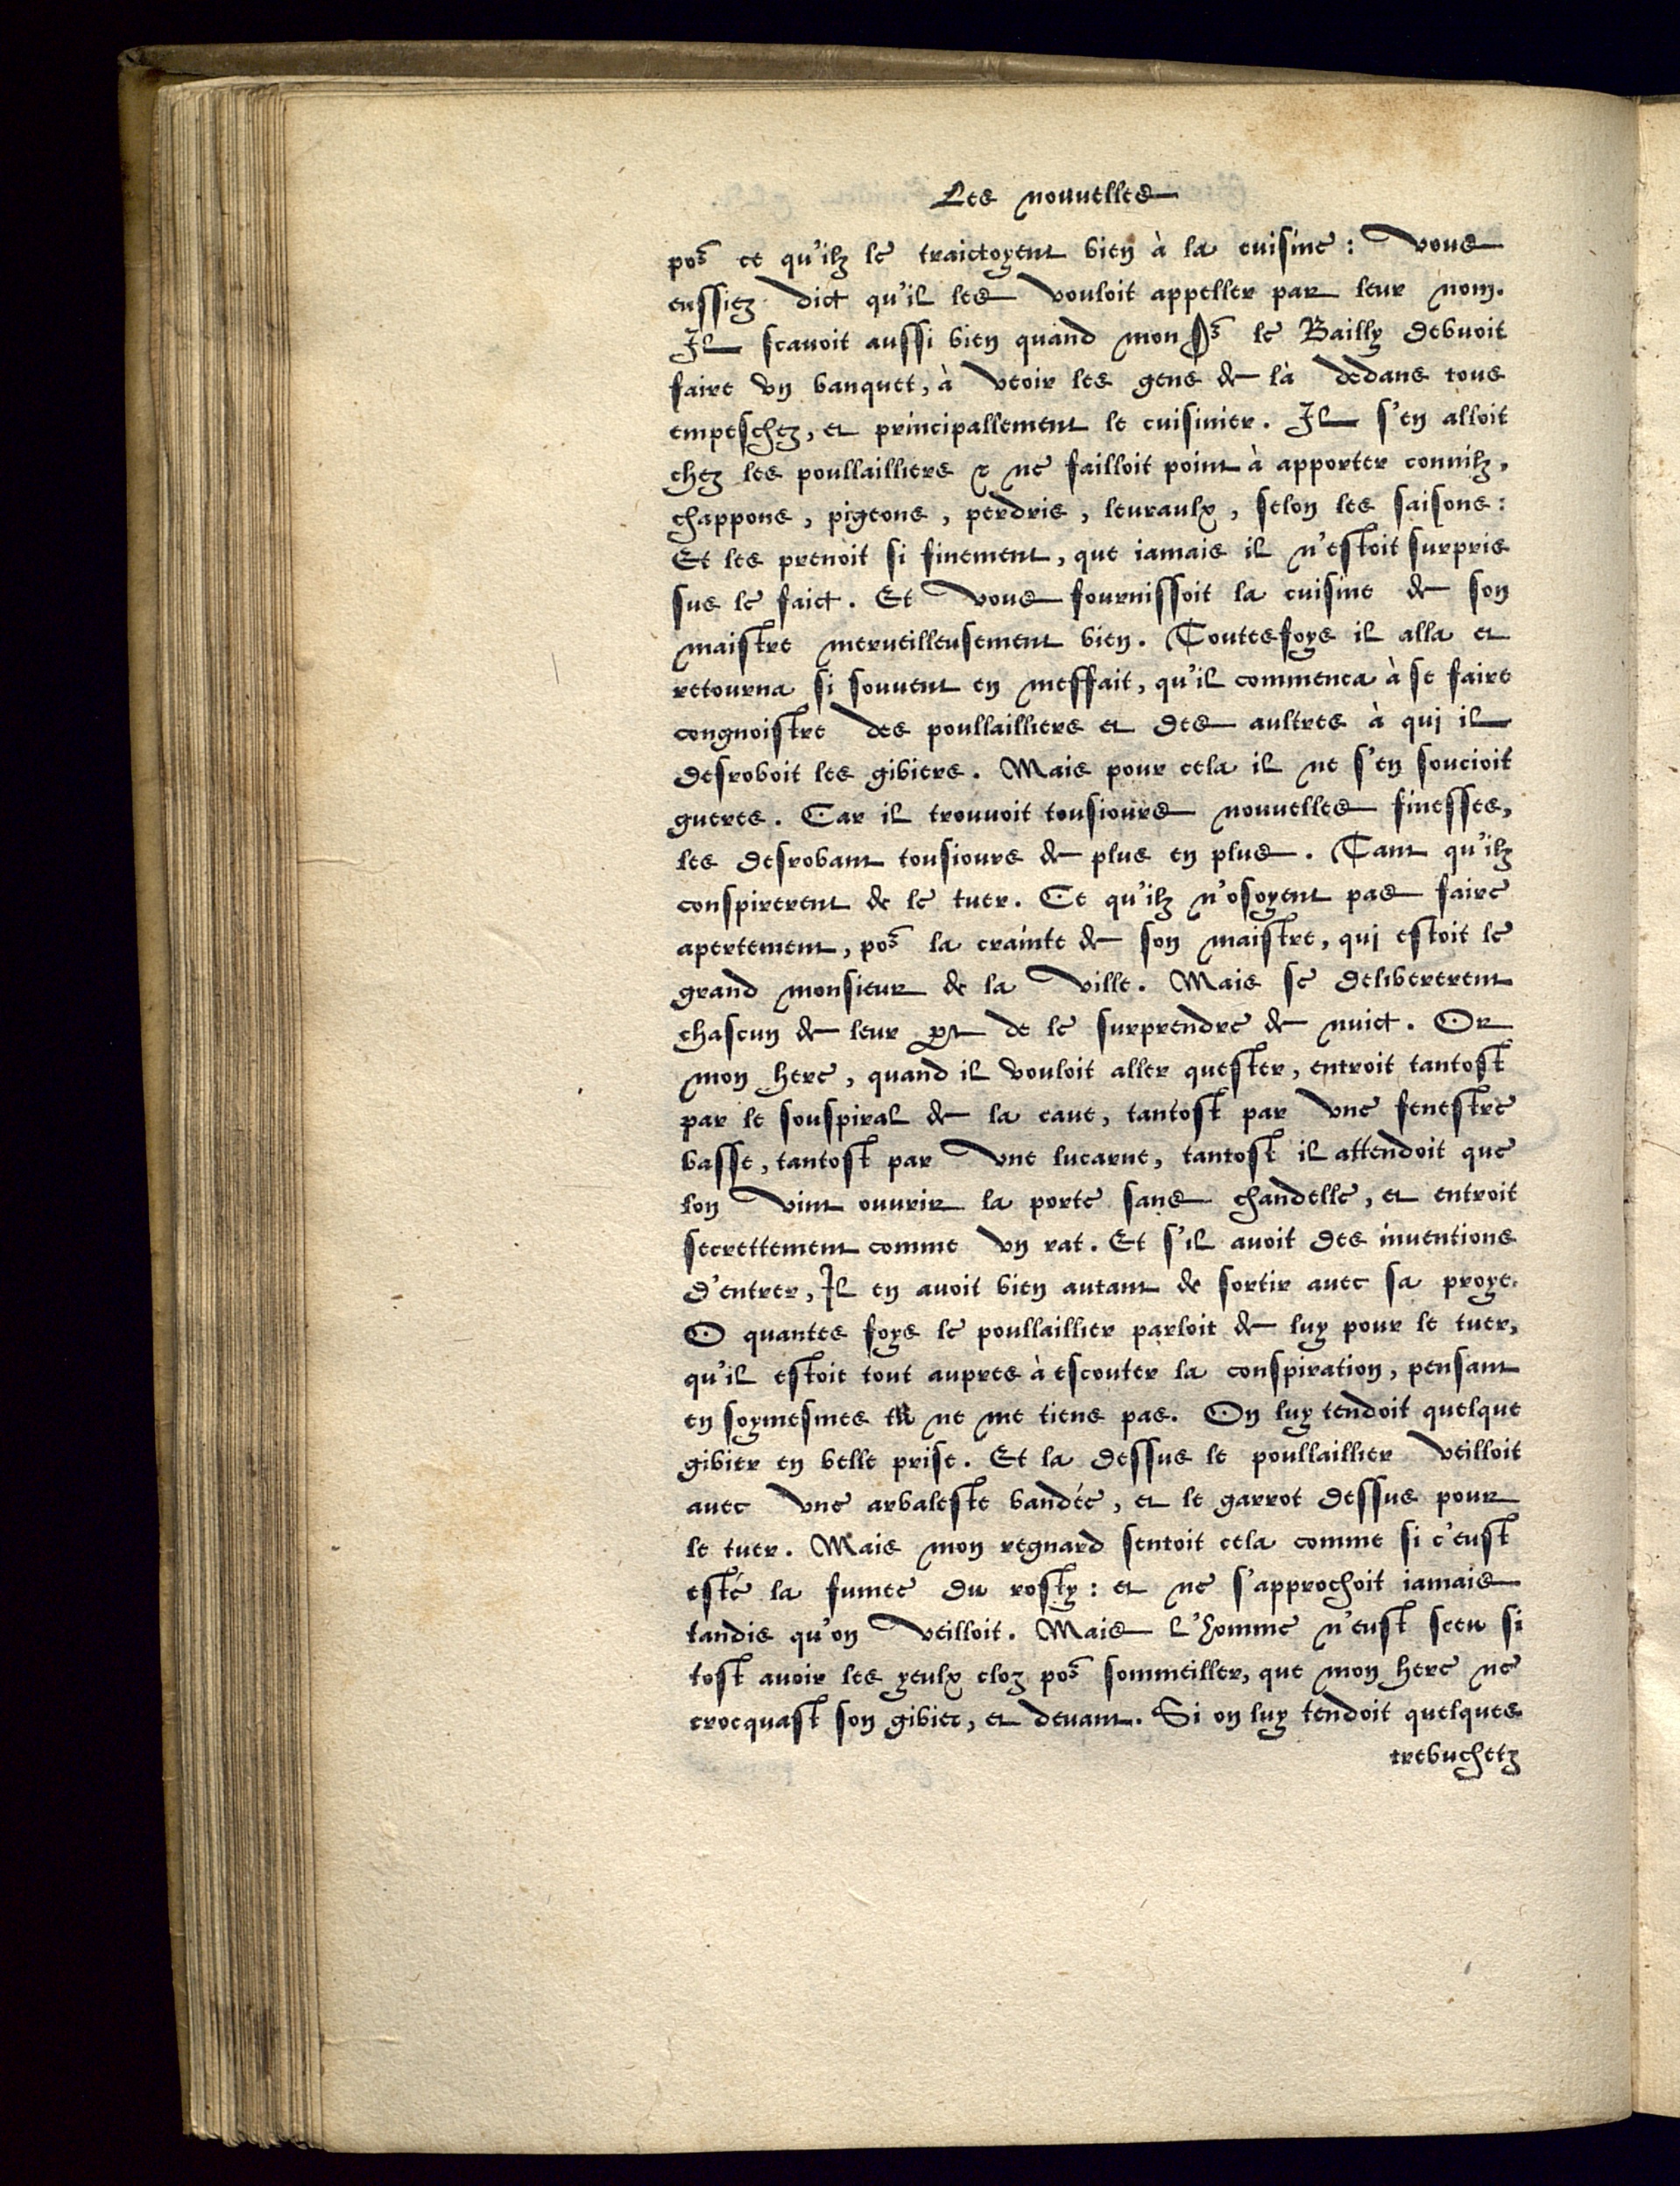 Les nouuelles
po͛ ce qu'ilz le traictoyent bien à la cuisine : vous
eussiez dict qu'il les vouloit appeller par leur nom.
Il scauoit aussi bien quand mon S͛ le Bailly debuoit
faire vn banquet, à veoir les gens de là dedans tous
empeschez, et principallement le cuisinier. Il s'en alloit
chez les poullailliers & ne failloit point à apporter connilz,
chappons, pigeons, perdris, leuraulx, selon les saisons :
Et les prenoit si finement, que iamais il n'estoit surpris
sus le faict. Et vous fournissoit la cuisine de son
maistre merueilleusement bien. Toutesfoys il alla et
retourna si souuent en meffait, qu'il commenca à se faire
congnoistre des poullailliers et des aultres à qui il
desroboit les gibiers. Mais pour cela il ne s'en soucioit
gueres. Car il trouuoit tousiours nouuelles finesses,
les desrobant tousiours de plus en plus. Tant qu'ilz
conspirerent de le tuer. Ce qu'ilz n'osoyent pas faire
apertement, po͛ la crainte de son maistre, qui estoit le
grand monsieur de la ville. Mais se delibererent
chascun de leur ꝑt de le surprendre de nuict. Or
mon here, quand il vouloit aller quester, entroit tantost
par le souspiral de la caue, tantost par vne fenestre
basse, tantost par vne lucarne, tantost il attendoit que
lon vint ouurir la porte sans chandelle, et entroit
secrettement comme vn rat. Et s'il auoit des inuentions
d'entrer, Il en auoit bien autant de sortir auec sa proye.
O quantes foys le poullaillier parloit de luy pour le tuer,
qu'il estoit tout aupres à escouter la conspiration, pensant
en soymesmes tu ne me tiens pas. On luy tendoit quelque
gibier en belle prise. Et la dessus le poullaillier veilloit
auec vne arbaleste bandée, et le garrot dessus pour
le tuer. Mais mon regnard sentoit cela comme si c'eust
esté la fumee du rosty : et ne s'approchoit iamais
tandis qu'on veilloit. Mais l'homme n'eust sceu si
tost auoir les yeulx cloz po͛ sommeiller, que mon here ne
crocquast son gibier, et deuant. Si on luy tendoit quelques
trebuchetz